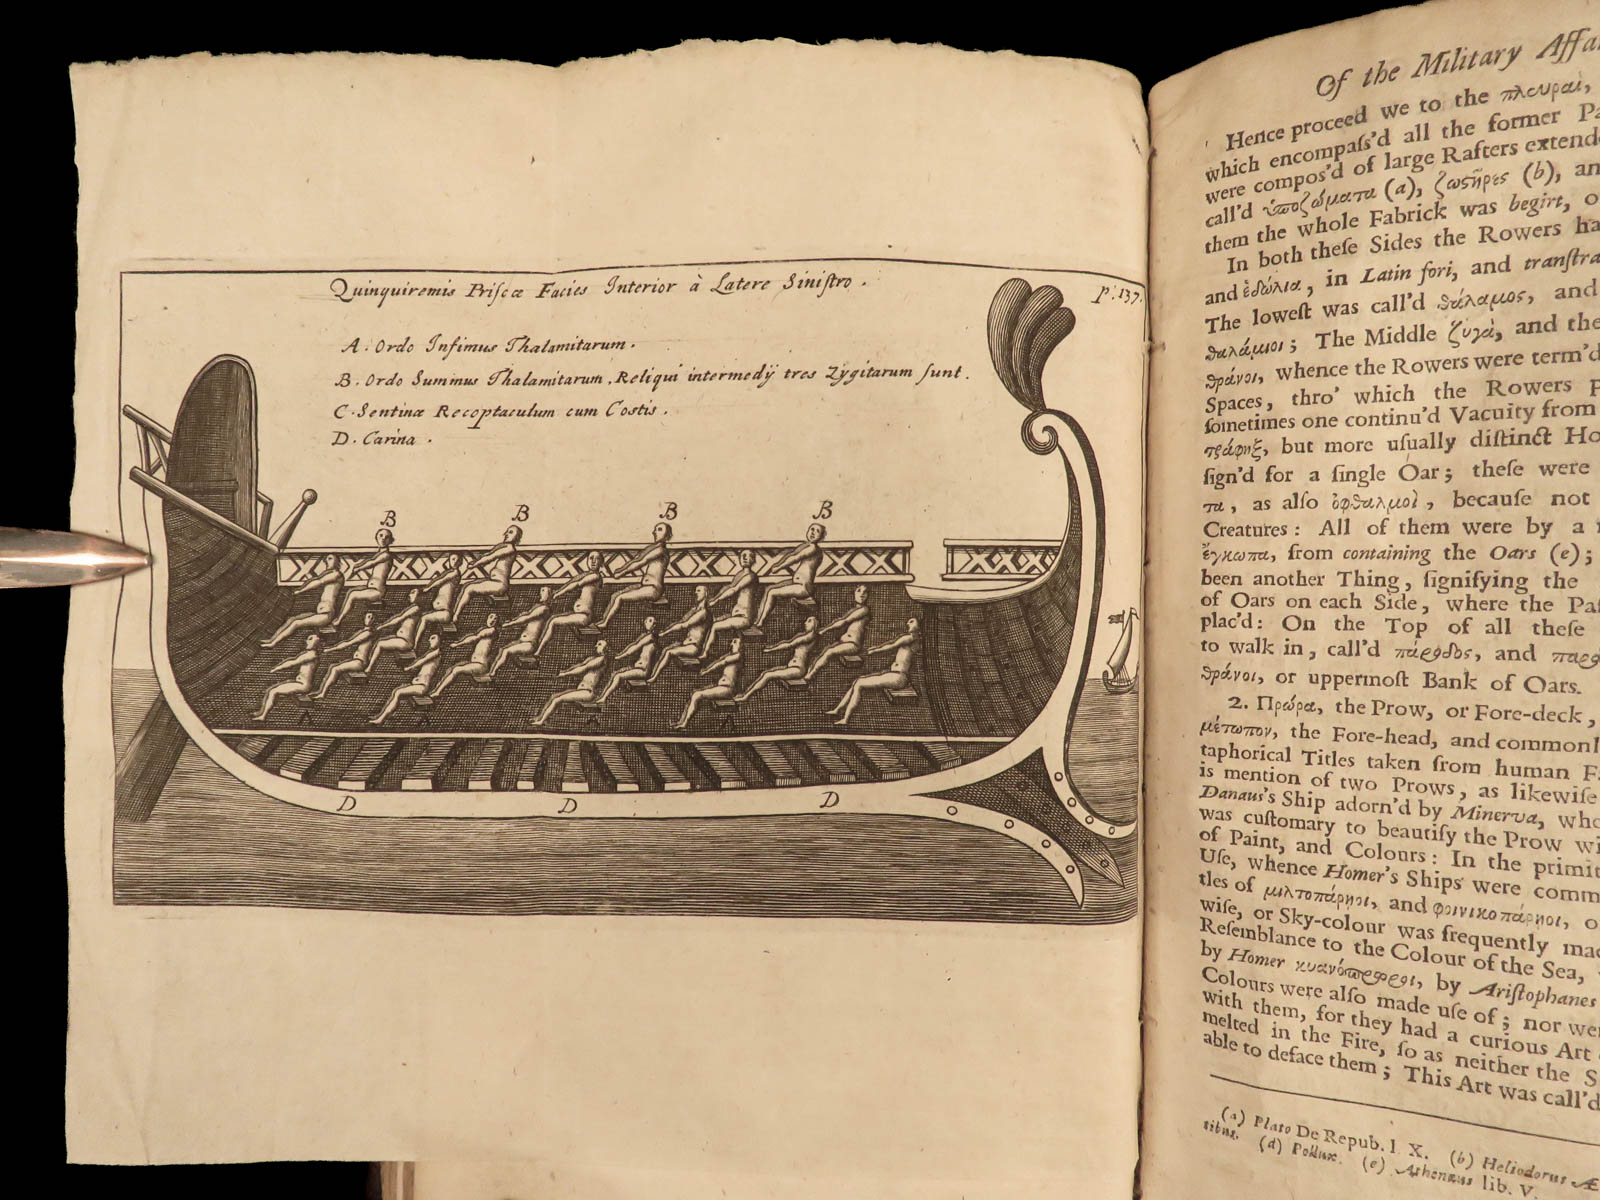 Quinquiremis Priscæ Facies Interior à Latere Siniſtro.
p. 137.
A. Ordo Infimus Thalamitarum.
B. Ordo Summus Thalamitarum. Reliqui intermedij tres Zÿgitarum ſunt.
C. Sentinæ Recoptaculum cum Coſtis.
D. Carina.
B B B B
A A A A
D D D
Of the Military Affai
Hence proceed we to the πλευραὶ,
which encompaſs'd all the former Pa
were compos'd of large Rafters extend
call'd ὑποζώματα (a), ζωςῆρες (b), an
them the whole Fabrick was begirt, o
In both theſe Sides the Rowers ha
and ἑδώλια, in Latin fori, and tranſtra
The loweſt was call'd θάλαμος, and
θαλάμιοι; The Middle ζυγὰ, and the
θράνοι, whence the Rowers were term'd
Spaces, thro' which the Rowers p
ſometimes one continu'd Vacuity from
τράφηξ, but more uſually diſtinct Ho
ſign'd for a ſingle Oar; theſe were
τα, as alſo ὀφθαλμοὶ, becauſe not
Creatures: All of them were by a
ἔγκωπα, from containing the Oars (e);
been another Thing, ſignifying the
of Oars on each Side, where the Paſ
plac'd: On the Top of all theſe
to walk in, call'd πάροδος, and παρ
θράνοι, or uppermoſt Bank of Oars.
2. Πρώρα, the Prow, or Fore-deck,
μέτωπον, the Fore-head, and commonl
taphorical Titles taken from human F
is mention of two Prows, as likewiſe
Danaus's Ship adorn'd by Minerva, who
was cuſtomary to beautify the Prow wi
of Paint, and Colours: In the primit
Uſe, whence Homer's Ships were comm
tles of μιλτοπάρηοι, and φοινικοπάρηοι, o
wiſe, or Sky-colour was frequently mad
Reſemblance to the Colour of the Sea,
by Homer κυανόπρωροι, by Ariſtophanes
Colours were alſo made uſe of; nor we
with them, for they had a curious Art
melted in the Fire, ſo as neither the S
able to deface them; This Art was call'd
(a) Plato De Repub. l. X. (b) Heliodorus Æ
tibus. (d) Pollux. (e) Athenæus lib. V.